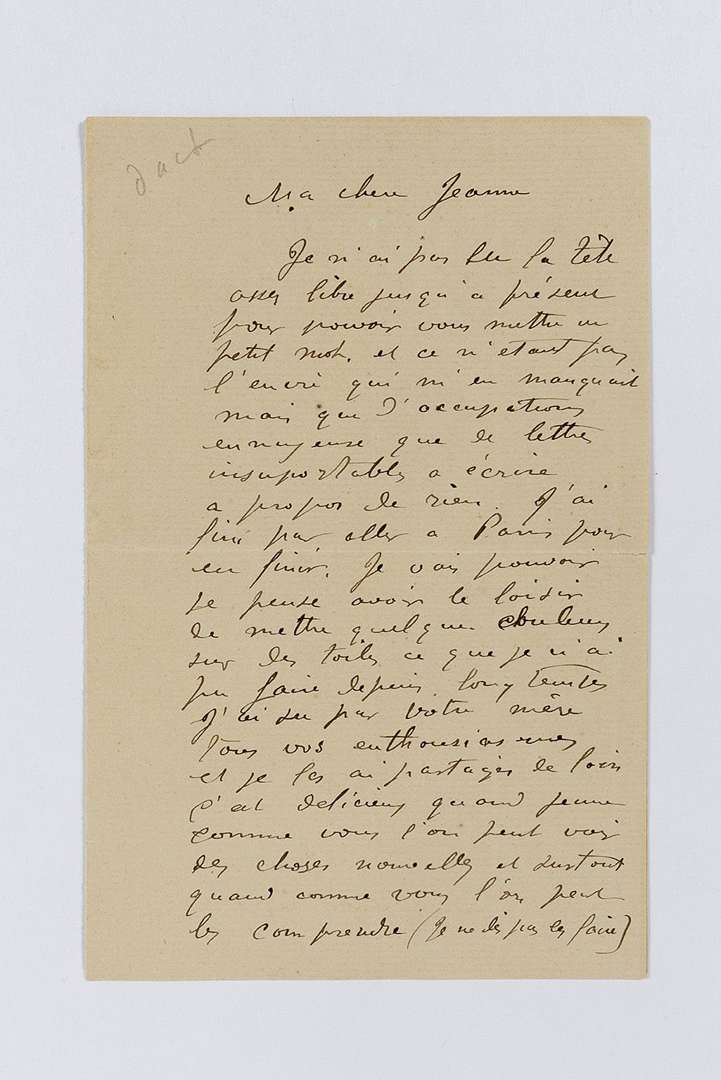 dact
Ma chere Jeanne
Je n'ai pas eu la tête
assez libre jusqu'a présent
pour pouvoir vous mettre un
petit mot. et ce n'etait pas
l'envie qui m'en manquait
mais que d'occupations
ennuyeuse que de lettres
insuportables a écrire
a propos de rien. J'ai
fini par aller a Paris pour
en finir. Je vais pouvoir
je pense avoir le loisir
de mettre quelques couleurs
sur des toiles ce que je n'ai
pu faire depuis longtemps
J'ai su par votre mère
tous vos enthousiasmes
et je les ai partagés de loin
C'est delicieux quand jeune
comme vous l'on peut voir
des choses nouvelles et surtout
quand comme vous l'on peut
les comprendre (je ne dis pas les faire)